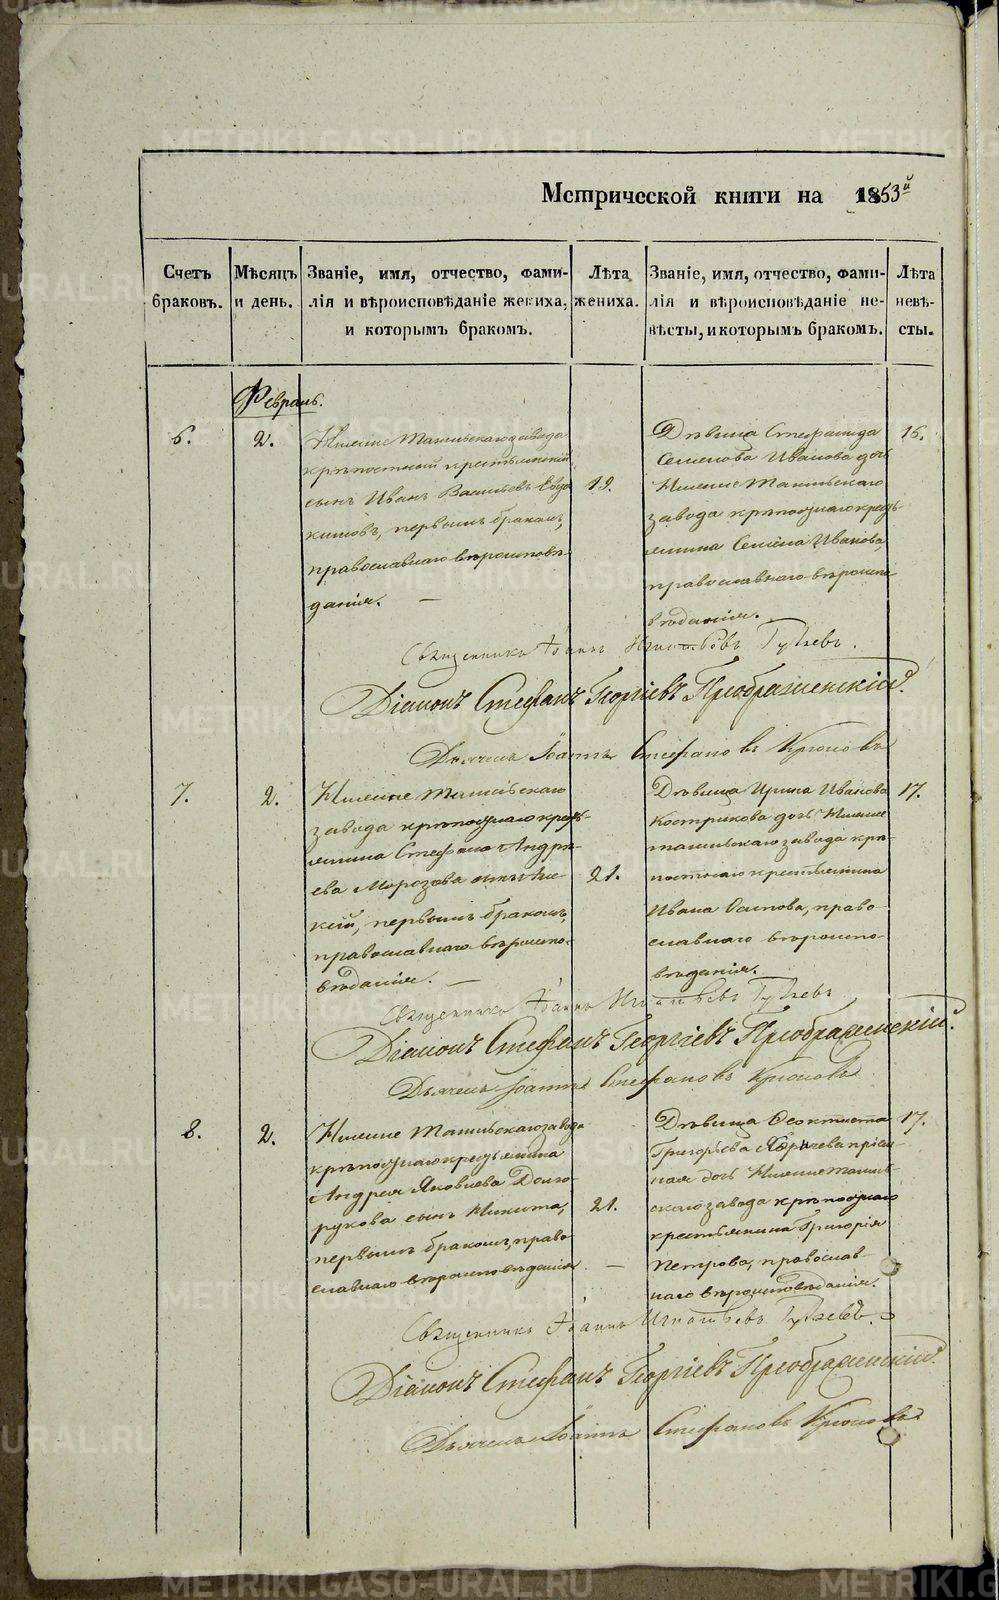 Метрической книги на 1853й
Счетъ браковъ.
Мѣсяцъ и день.
Званіе, имя, отчество, фами-
лія и вѣроисповѣданіе жениха,
и которымъ бракомъ.
Лѣта
жениха.
Званіе, имя, отчество, фами-
лія и вѣроисповѣданіе не-
вѣсты, и которымъ бракомъ.
Лѣта
невѣ-
сты.
Февраль.
6.
2.
Нижне Тагильскаго завода
крѣпостный крестьянскій
сынъ Иванъ Васильевъ Евдо
кимовъ, первымъ бракомъ,
православнаго вѣроисповѣ-
данія.
19.
Дѣвица Стефанида
Семенова Иванова дочь
Нижне Тагильскаго
завода крѣпостнаго кресть
янина Семёна Иванова,
православнаго вѣроиспо
вѣданія.
16.
Священникъ Іоаннъ Игнатьевъ
Діаконъ Стефанъ Георгіевъ Преображенскій.
Дьячекъ Іоаннъ Стефановъ Крюковъ
7.
2.
Нижне Тагильскаго
завода крѣпостнаго кресть-
янина Стефана Андре-
ева Морозова сынъ
первымъ бракомъ,
православнаго вѣроиспо-
вѣданія.
21.
Дѣвица Ирина Иванова
Кострикова дочь Нижне
тагильскаго завода крѣ-
постнаго крестьянина
Ивана Осипова, право-
славнаго вѣроиспо-
вѣданія.
17.
Священникъ Іоаннъ Игнатьевъ
Діаконъ Стефанъ Георгіевъ Преображенскій.
Дьячекъ Іоаннъ Стефановъ Крюковъ
8.
2.
Нижне Тагильскаго завода
крѣпостнаго крестьянина
Андрея Яковлева Долго-
рукова сынъ Никита,
первымъ бракомъ, право-
славнаго вѣроисповѣданія
21.
Дѣвица Ѳеоктиста
Григорьева пріем-
ная дочь Нижнетагиль-
скаго завода крѣпостнаго
крестьянина Григорія
Петрова, православ-
наго вѣроисповѣданія.
17.
Священникъ Іоаннъ Игнатьевъ
Діаконъ Стефанъ Георгіевъ Преображенскій.
Дьячекъ Іоаннъ Стефановъ Крюковъ
METRIKI.GASO-URAL.RU